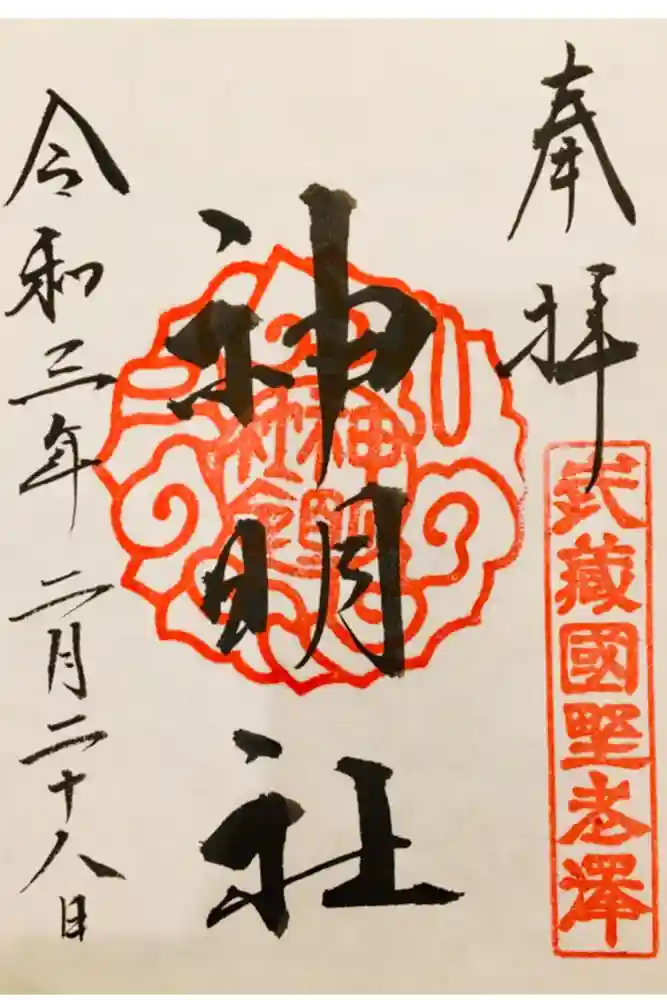 奉拝
武藏國野老澤
神明社
令和三年二月二十八日